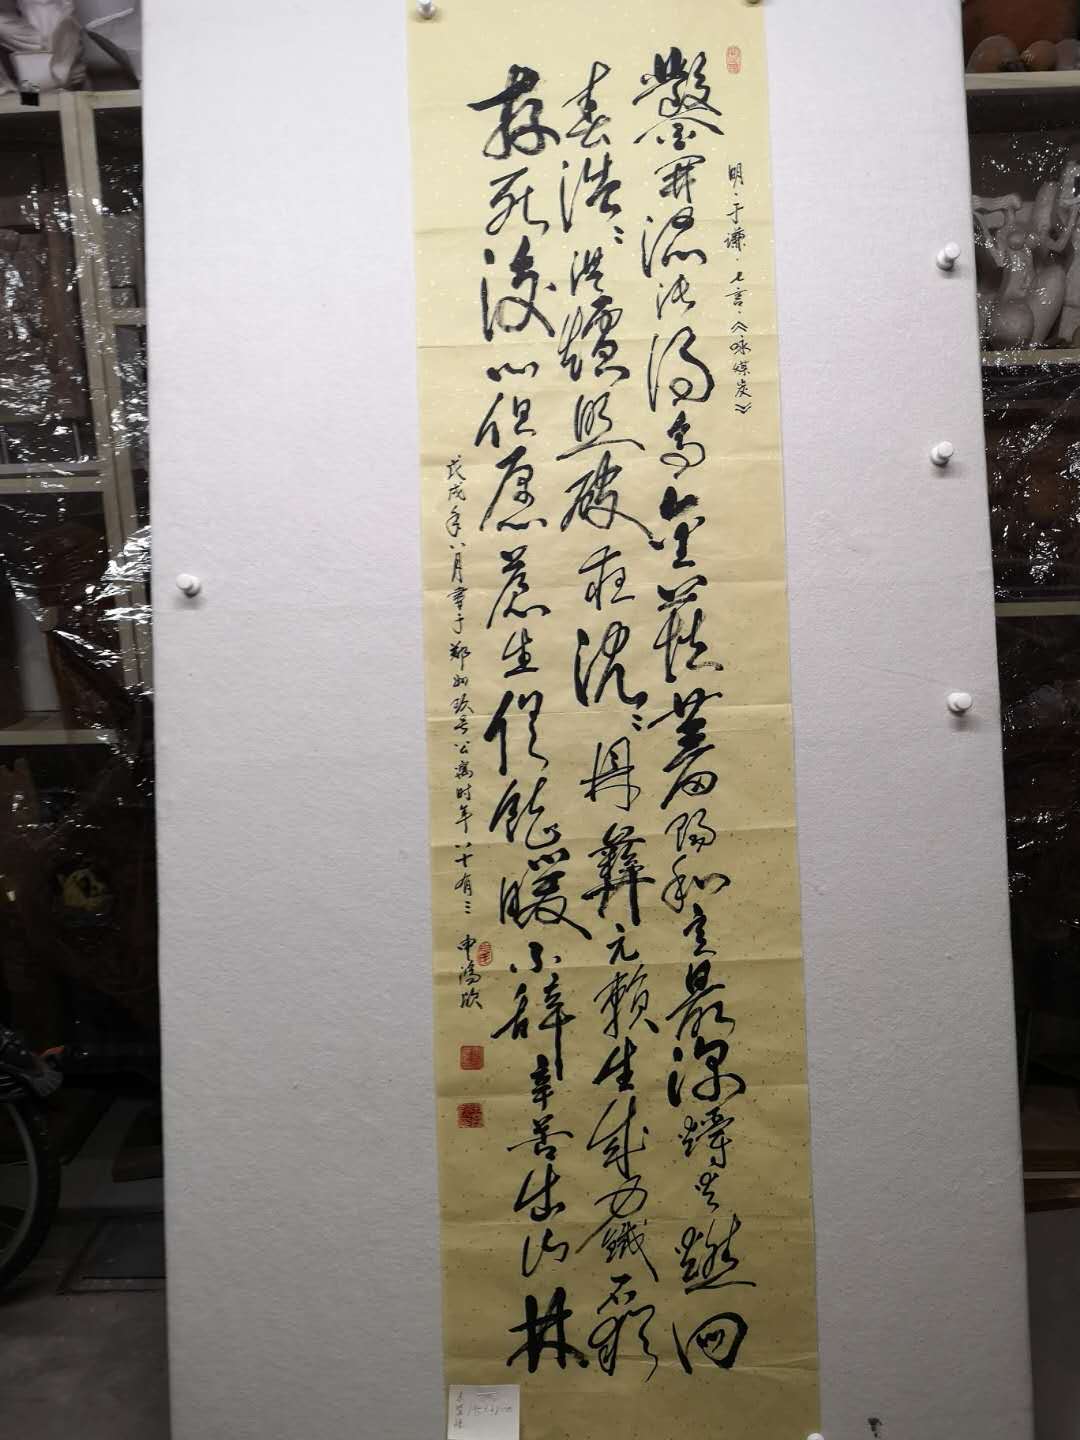 明·于谦·七言·《咏煤炭》
鑿開混沌得烏金藏蓄陽和意最深爝火燃回
春浩〻洪爐照破夜沉〻鼎彝元賴生成力鐵石猶
存死後心但愿蒼生俱飽暖不辭辛苦出山林
戊戌年八月書于郑州玖号公寓时年八十有三 申